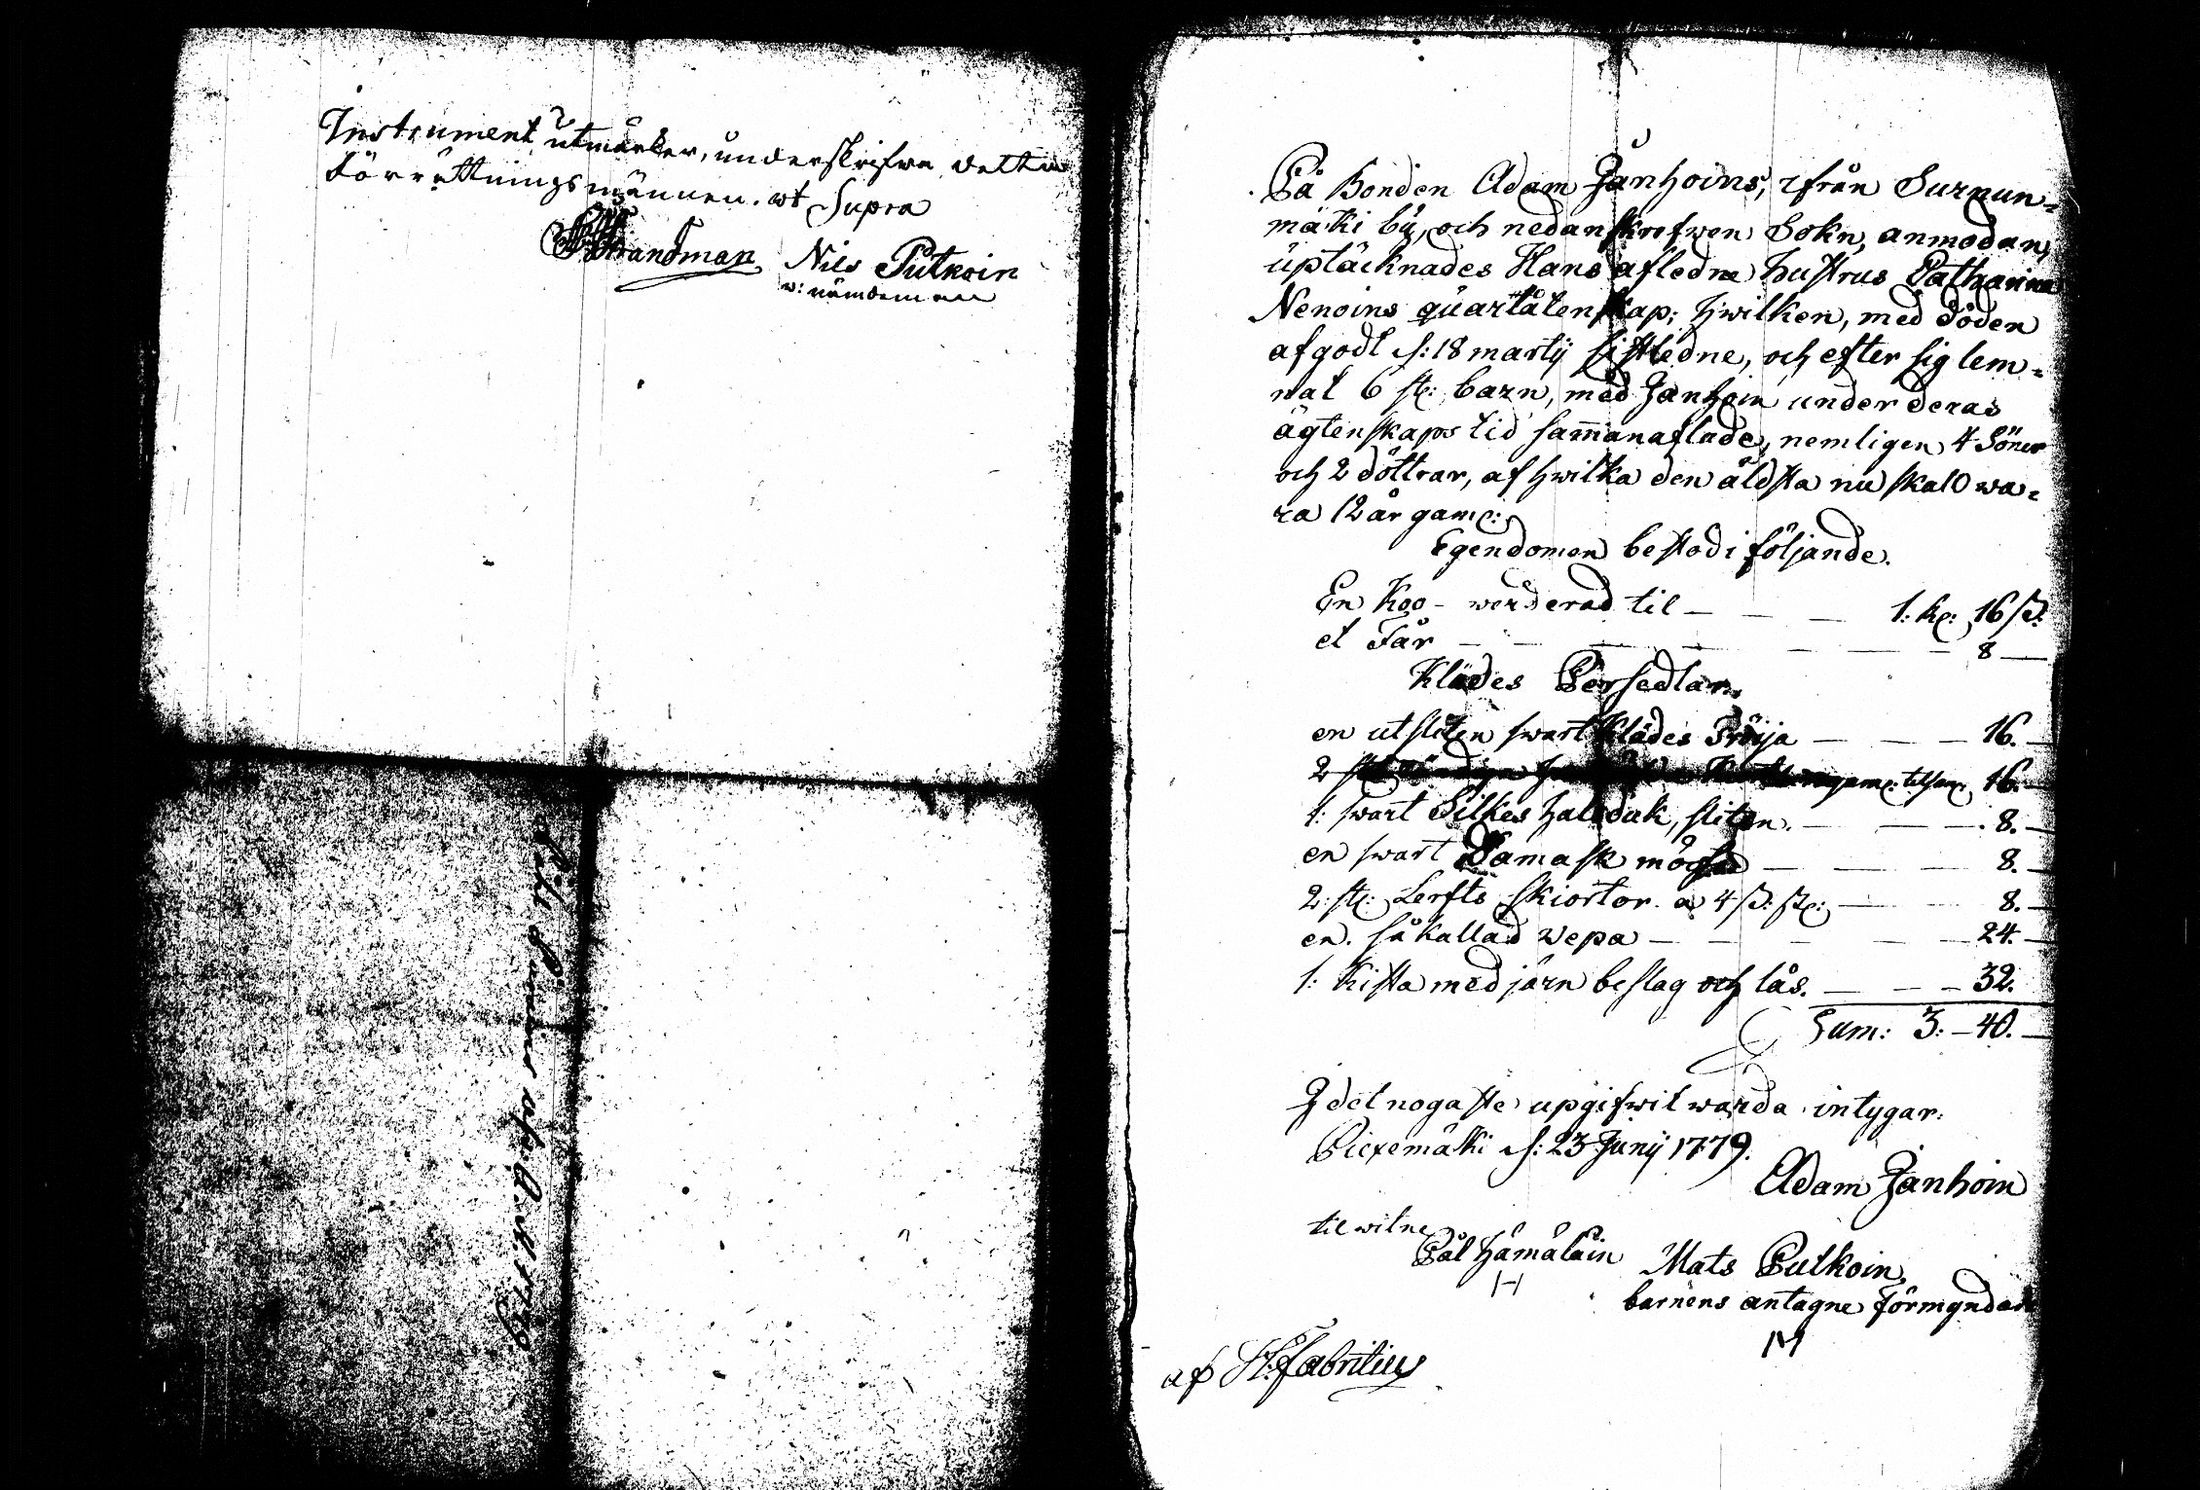 Instrument utmärker, underskrifwa detta
Förrättningsmännen. ut Supra
Strandman Nils Putkoin
nämdeman
På Bonden Adam Janhoins, ifrån Surnun=
mäki bÿ, och nedanskrefwen Sokn, anmodan,
uptäcknades Hans afledne hustrus Catharina
Nenoins quarlåtenskap; hwilken, med döden
afgådt d: 18 martij sistledne, och efter sig lem=
nat 6 st: barn, med Janhoin under deras
ägtenskaps tid sam̄anaflade, nemligen 4 Söner
och 2 döttrar, af hwilka den äldsta nu skall wa=
ra 12 år gam̄:
Egendomen bestod i följande.
En Koo - werderad til — — — 1: R: 16 ß:
et Får — — — — — — 8 —
Klädes Persedlar.
en utsliten swart Klädes Tröija — — — 16. —
2 tilsam: 16. —
1: swart Silkes halsduk, sliten. — — — 8. —
en swart Damask mössa — — — 8. —
2: st: Lerfts skiortor a 4 ß: st: — — 8. —
en. så kallad wepa — — — — — 24. —
1: Kista med järn beslag och lås. — — — 32.
Sum: 3: — 40. —
I det nogaste upgifwit warda intygar:
Piexemäki d: 23 Junij 1779.
Adam Janhoin
til witne
Pål Hämäläin Mats Putkoin,
H
barnens antagne förmyndare
M
af St: Fabritius